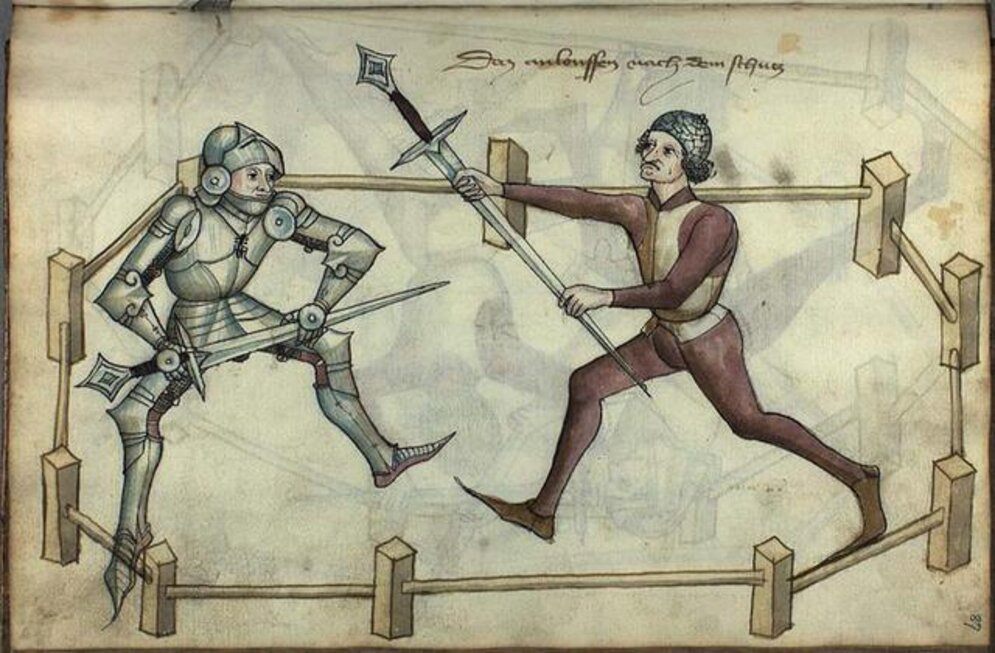 Daz anlouffen nach dem schutz